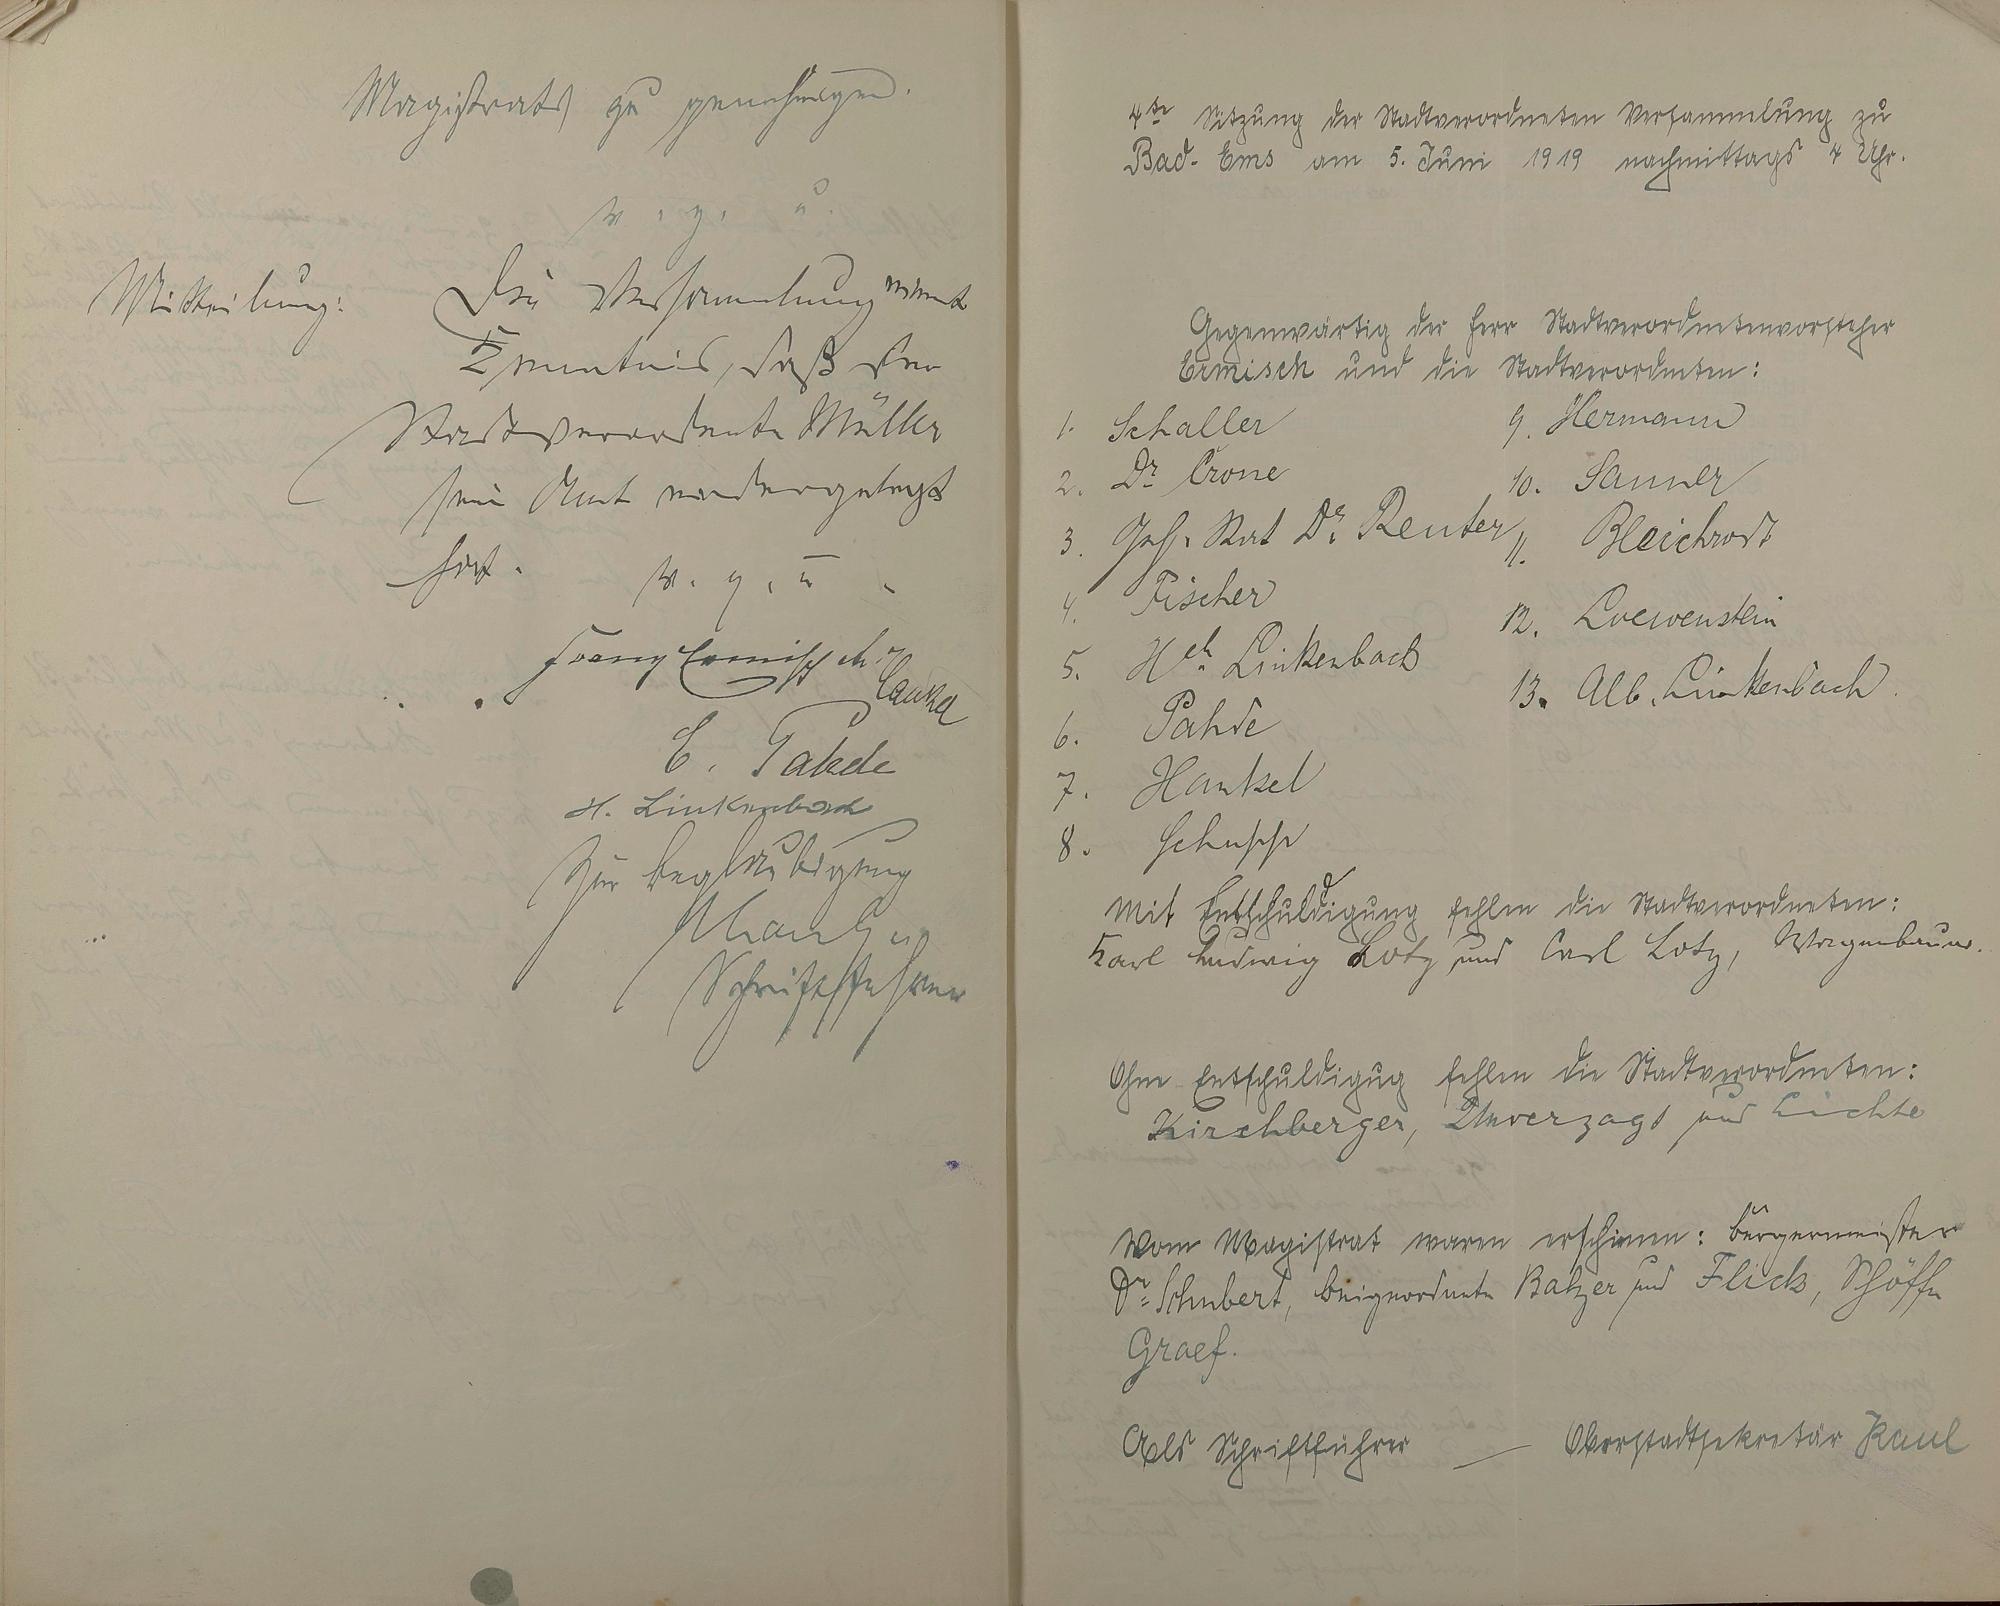 Magistrats zu genehmigen.
v. g. u.
Mitteilung:
Die Versammlung nimmt
Kenntnis, daß der
Stadtverordnete Müller
sein Amt niedergelegt
hat.
v. g. u.
Franz Ermisch.
Hankel
E. Pahde
H. Linkenbach
Zur Beglaubigung
Schriftführer
4te Sitzung der Stadtverordneten Versammlung zu
Bad-Ems am 5. Juni 1919 nachmittags 4 Uhr.
Gegenwärtig der Herr Stadtverordnetenvorsteher
Ermisch und die Stadtverordneten:
1. Schaller
2. Dr. Crone
3. Geh. Rat Dr. Reuter
4. Fischer
5. Hch. Linkenbach
6. Pahde
7. Hankel
8. Schupp
9. Hermann
10. Sanner
11. Bleichrodt
12. Loewenstein
13. Alb. Linkenbach.
Mit Entschuldigung fehlen die Stadtverordneten:
Karl Ludwig Lotz und Carl Lotz,
Ohne Entschuldigug fehlen die Stadtverordneten:
Kirchberger, Unverzagt und Lichte
Vom Magistrat waren erschienen: Bürgermeister
Dr. Schubert, Beigeordnete Balzer und Flick, Schöffe
Graef.
Als Schriftführer — Oberstadtsekretär Kaul